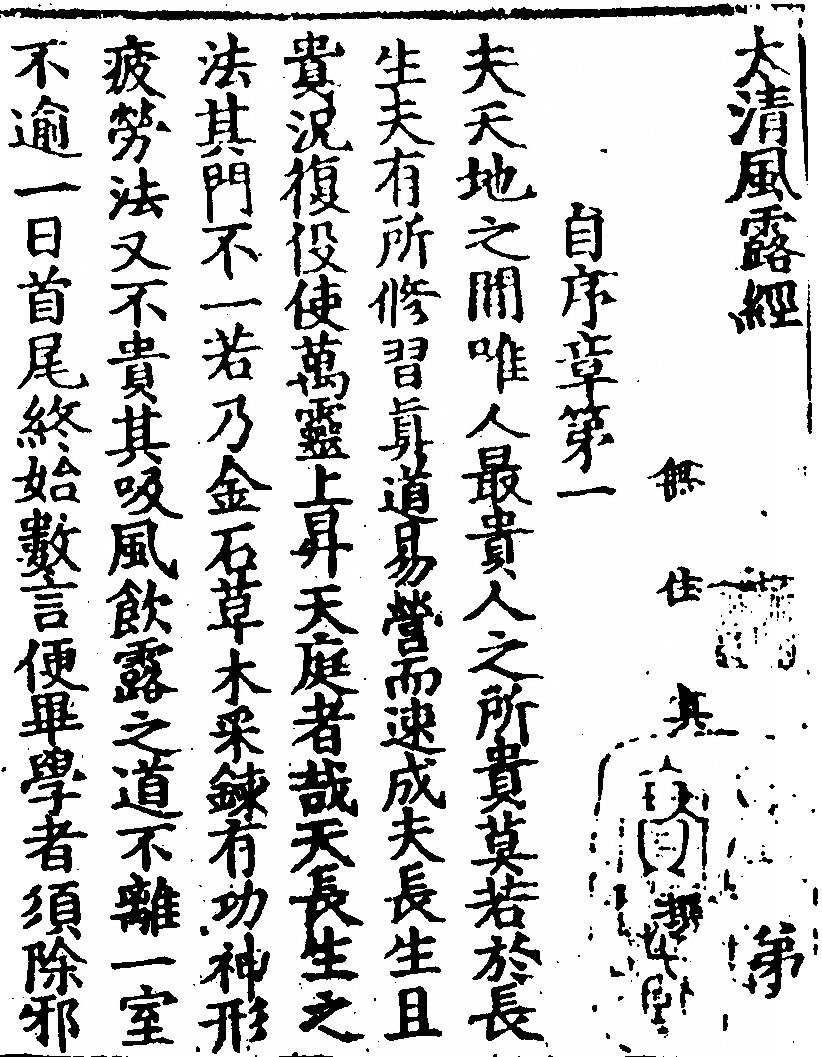 太清風露經 第
無住真 撰
自序章第一
夫天地之間唯人最貴人之所貴莫若於長
生夫有所修習眞道易營而速成夫長生且
貴況復役使萬靈上昇天庭者哉天長生之
法其門不一若乃金石草木采鍊有功神形
疲勞法又不貴其吸風飲露之道不離一室
不逾一日首尾終始數言便畢學者須除邪